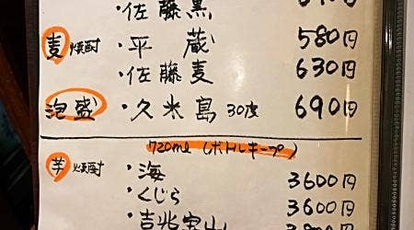 ・佐藤黒
麦焼酎 ・平蔵 580円
・佐藤麦 630円
泡盛 ・久米島 30度 690円
720ml (ボトルキープ)
芋焼酎 ・海 3600円
・くじら 3600円
・吉兆宝山